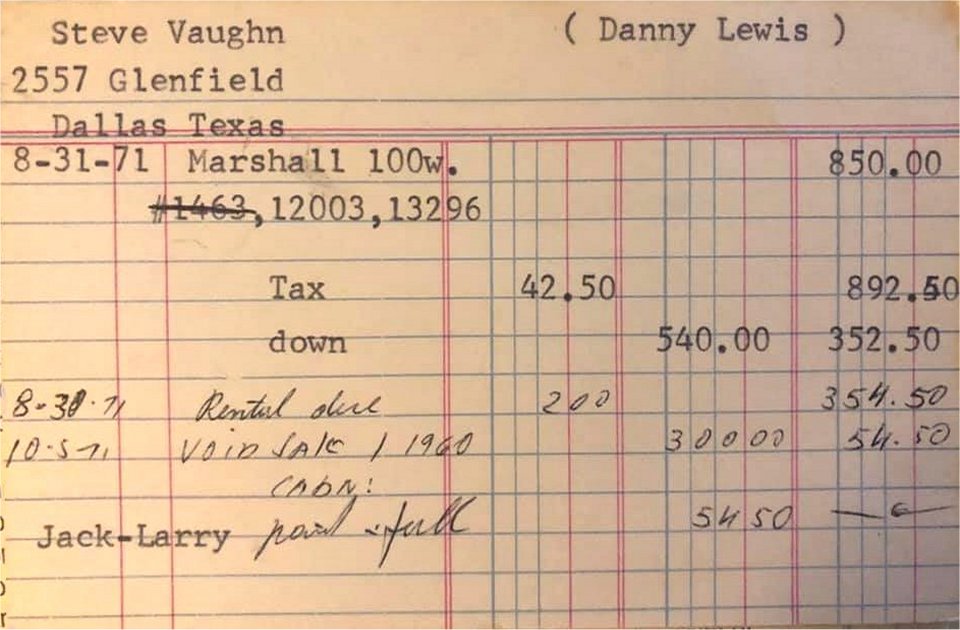 Steve Vaughn ( Danny Lewis )
2557 Glenfield
Dallas Texas
8-31-71 Marshall 100w. 850.00
#1463,12003,13296
Tax 42.50 892.50
down 540.00 352.50
8-30-71 Rental due 200 354.50
10-5-71 VOID SALE 1 1960 30000 54.50
CABN:
Jack-Larry paid in full 5450